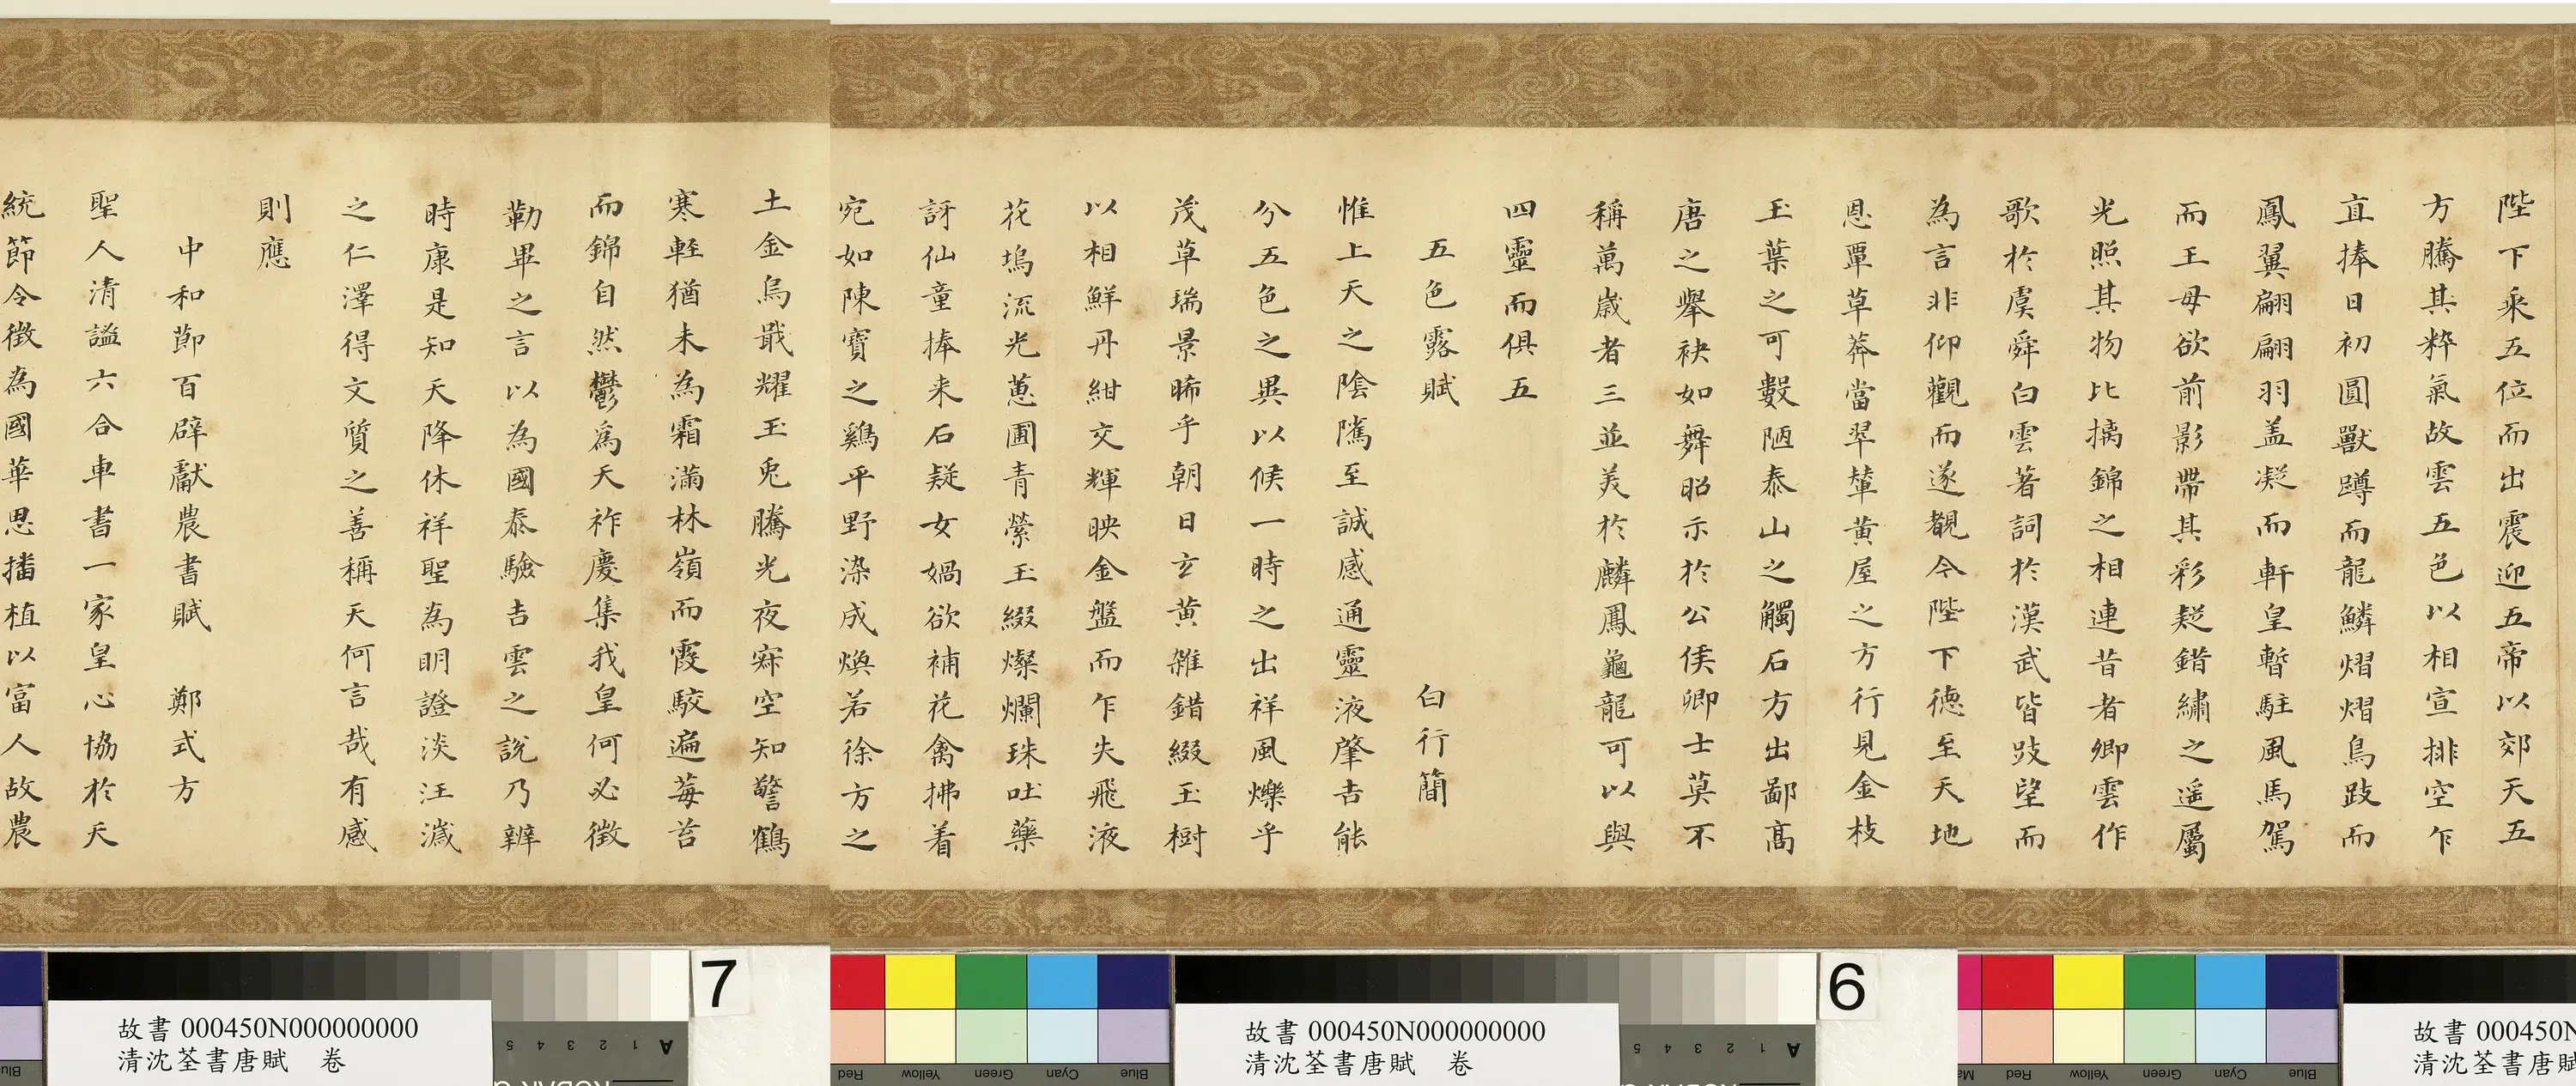 陛下乘五位而出震迎五帝以郊天五
方騰其粹氣故雲五色以相宣排空乍
直捧日初圓獸蹲而龍鱗熠熠鳥跂而
鳳翼翩翩羽盖凝而軒皇暫駐風馬駕
而王母欲前影帶其彩疑錯繡之遥屬
光照其物比摛錦之相連昔者卿雲作
歌於虞舜白雲著詞於漢武皆跂望而
為言非仰觀而遂覩今陛下德至天地
恩覃草莽當翠輦黄屋之方行見金枝
玉葉之可數陋泰山之觸石方出鄙高
唐之舉袂如舞昭示於公侯卿士莫不
稱萬歲者三並美於麟鳳龜龍可以與
四靈而俱五
五色露賦 白行簡
惟上天之陰隲至誠感通靈液肇吉能
分五色之異以候一時之出祥風爍乎
茂草瑞景晞乎朝日玄黄雜錯綴玉樹
以相鮮丹紺交輝映金盤而乍失飛液
花塢流光蕙圃青縈玉綴燦爛珠吐藥
訝仙童捧来石疑女媧欲補花禽拂着
宛如陳寶之鷄平野染成煥若徐方之
土金烏戢耀玉兎騰光夜寂空知警鶴
寒輕猶未為霜滿林嶺而霞駮遍莓苔
而錦自然鬱為天祚慶集我皇何必徵
勒畢之言以為國泰驗吉雲之說乃辨
時康是知天降休祥聖為明證淡汪濊
之仁澤得文質之善稱天何言哉有感
則應
中和節百辟獻農書賦 鄭式方
聖人清謐六合車書一家皇心協於天
統節令徵為國華思播植以富人故農
7
6
故書000450N000000000
清沈荃書唐賦 卷
故書000450N000000000
清沈荃書唐賦 卷
故書000450N
清沈荃書唐賦
A 1 2 3 4 5
A 1 2 3 4 5
Red Yellow Green Cyan Blue
Red Yellow Green Cyan Blue